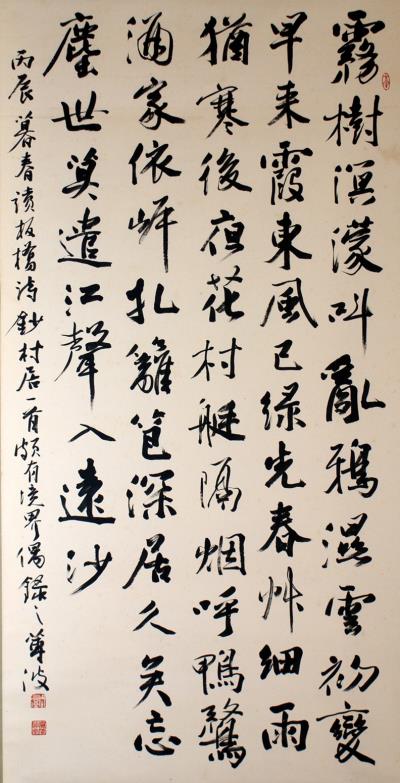 霧樹溟濛叫亂鴉濕雲初變
早来霞東風已绿先春艸细雨
猶寒後夜花村艇隔烟呼鴨鶩
酒家依岸扎籬笆深居久矣忘
塵世莫遣江聲入遠沙
丙辰暮春读板橋诗鈔村居一首颇有境界偶録之波